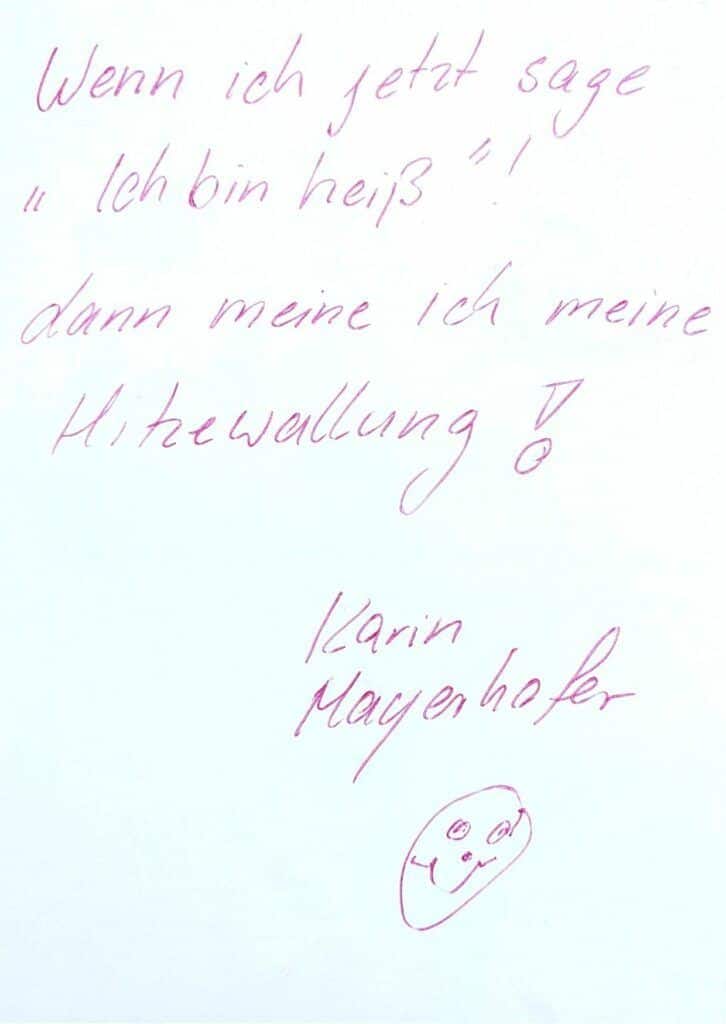 Wenn ich jetzt sage
„ Ich bin heiß "!
dann meine ich meine
Hitzewallung!
Karin
Mayerhofer